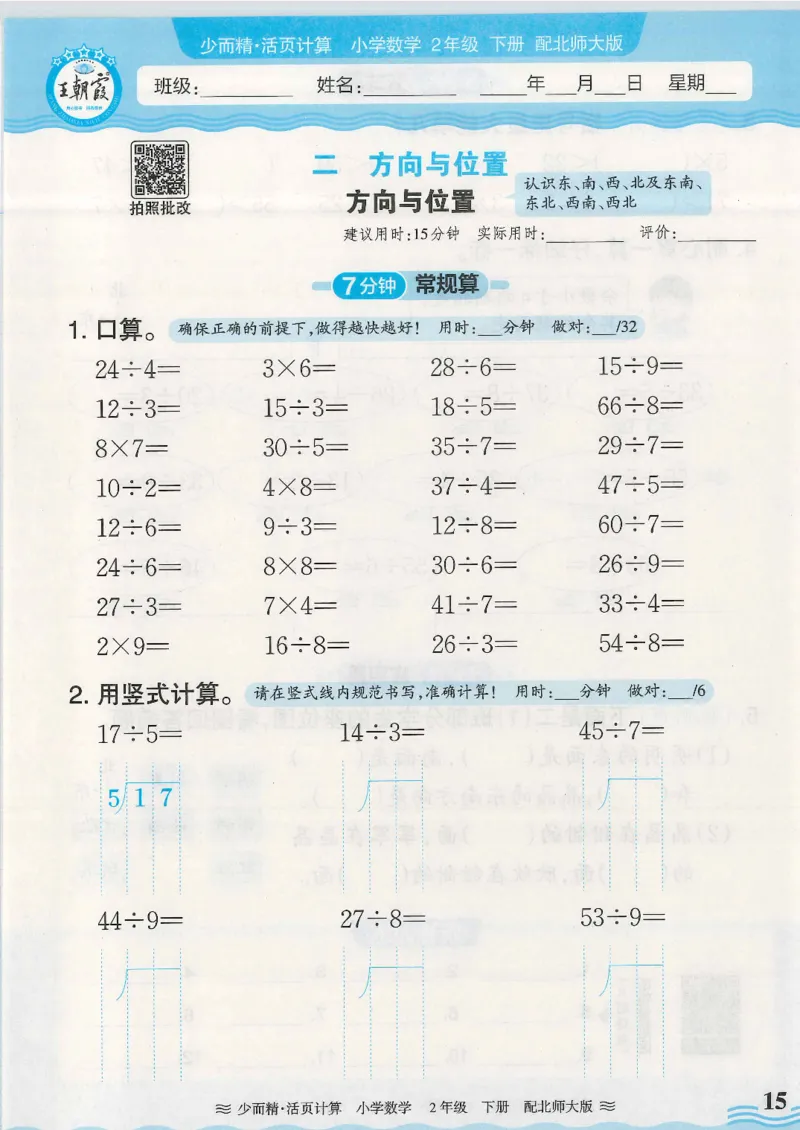 少而精·活页计算 小学数学 2年级 下册 配北师大版
王朝霞
班级:________ 姓名:________ ____年___月___日 星期___
二 方向与位置
方向与位置
认识东、南、西、北及东南、
东北、西南、西北
拍照批改
建议用时:15分钟 实际用时:________ 评价:________
7分钟 常规算
1. 口算。 确保正确的前提下,做得越快越好! 用时:___分钟 做对:___/32
24÷4= 3×6= 28÷6= 15÷9=
12÷3= 15÷3= 18÷5= 66÷8=
8×7= 30÷5= 35÷7= 29÷7=
10÷2= 4×8= 37÷4= 47÷5=
12÷6= 9÷3= 12÷8= 60÷7=
24÷6= 8×8= 30÷6= 26÷9=
27÷3= 7×4= 41÷7= 33÷4=
2×9= 16÷8= 26÷3= 54÷8=
2. 用竖式计算。 请在竖式线内规范书写,准确计算! 用时:___分钟 做对:___/6
17÷5= 14÷3= 45÷7=
5 1 7
44÷9= 27÷8= 53÷9=
少而精·活页计算 小学数学 2年级 下册 配北师大版
15